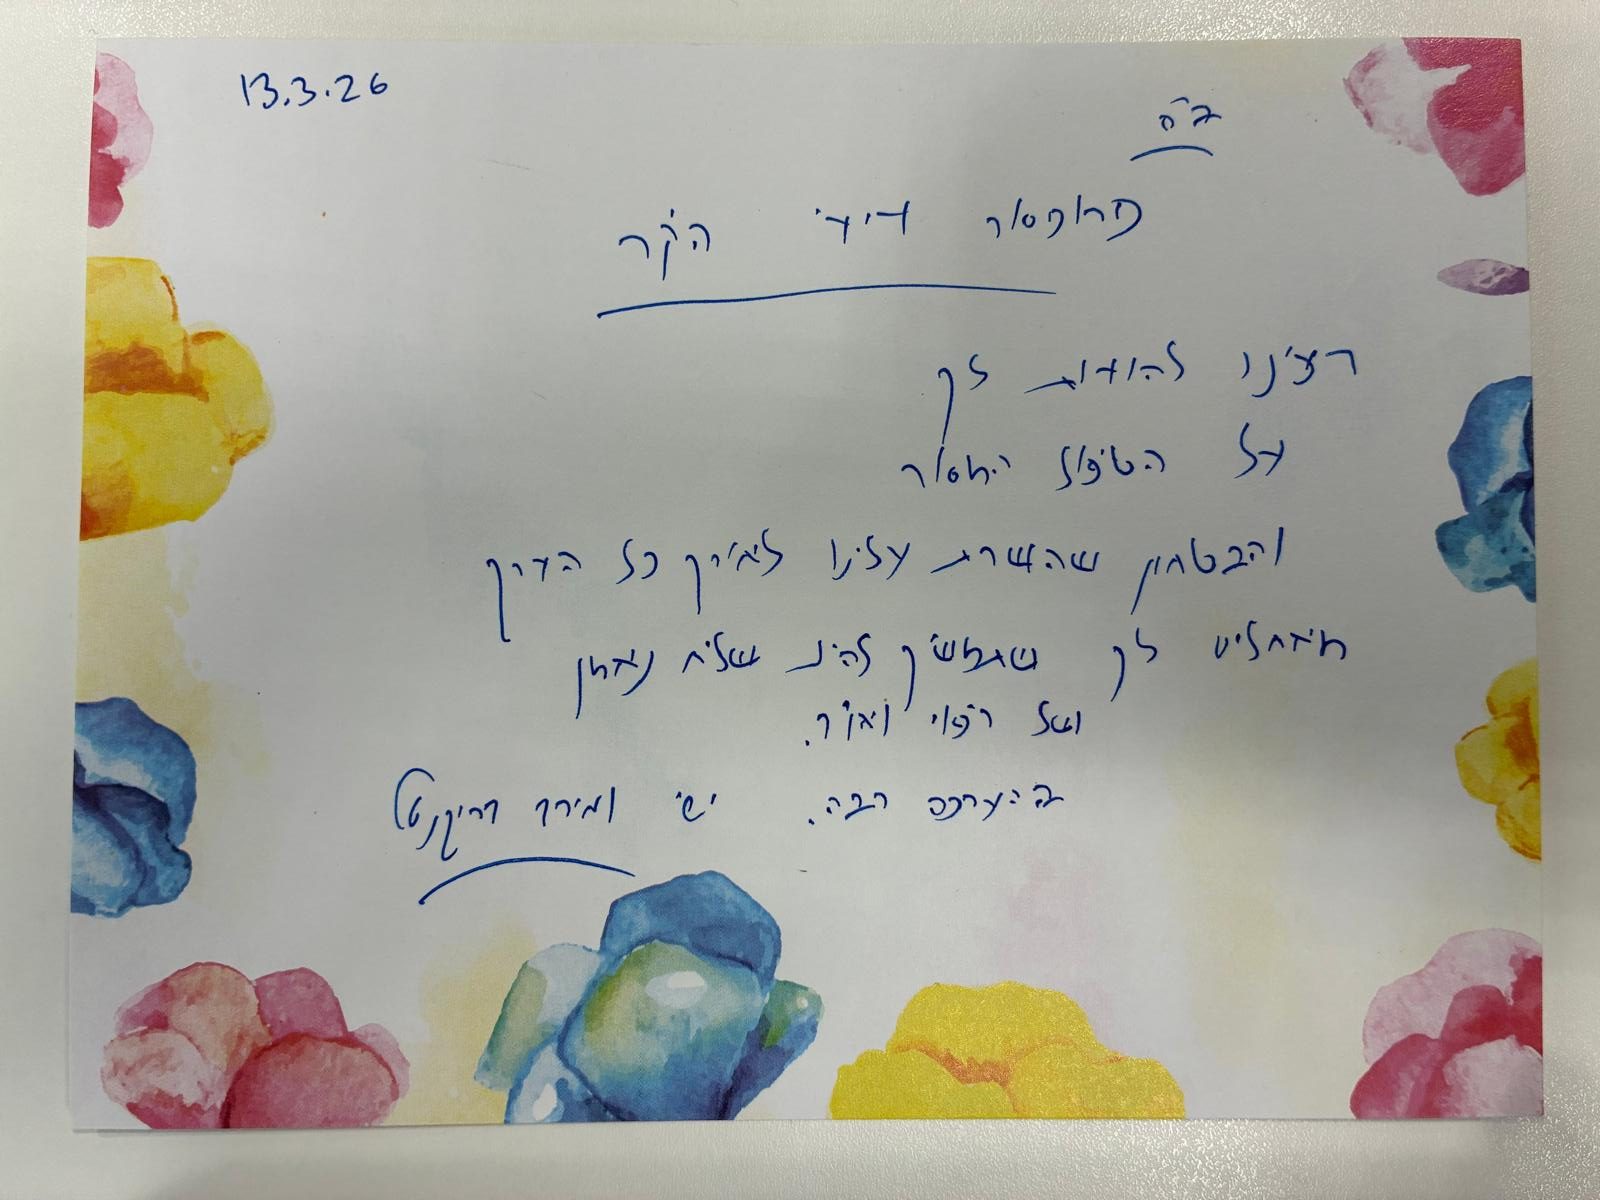 13.3.26
ב"ה
פרופסור דידי היקר
רצינו להודות לך
על הטיפול המסור
והבטחון שהשרת עלינו לאורך כל הדרך
מאחלים לך שתמשיך להיות שליח נאמן
של ריפוי ואור.
בהערכה רבה. ישי ומירב